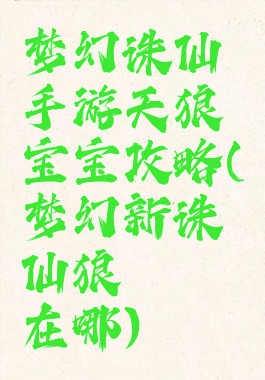 梦幻诛仙
手游天狼
宝宝攻略(
梦幻新诛
仙狼
在哪)